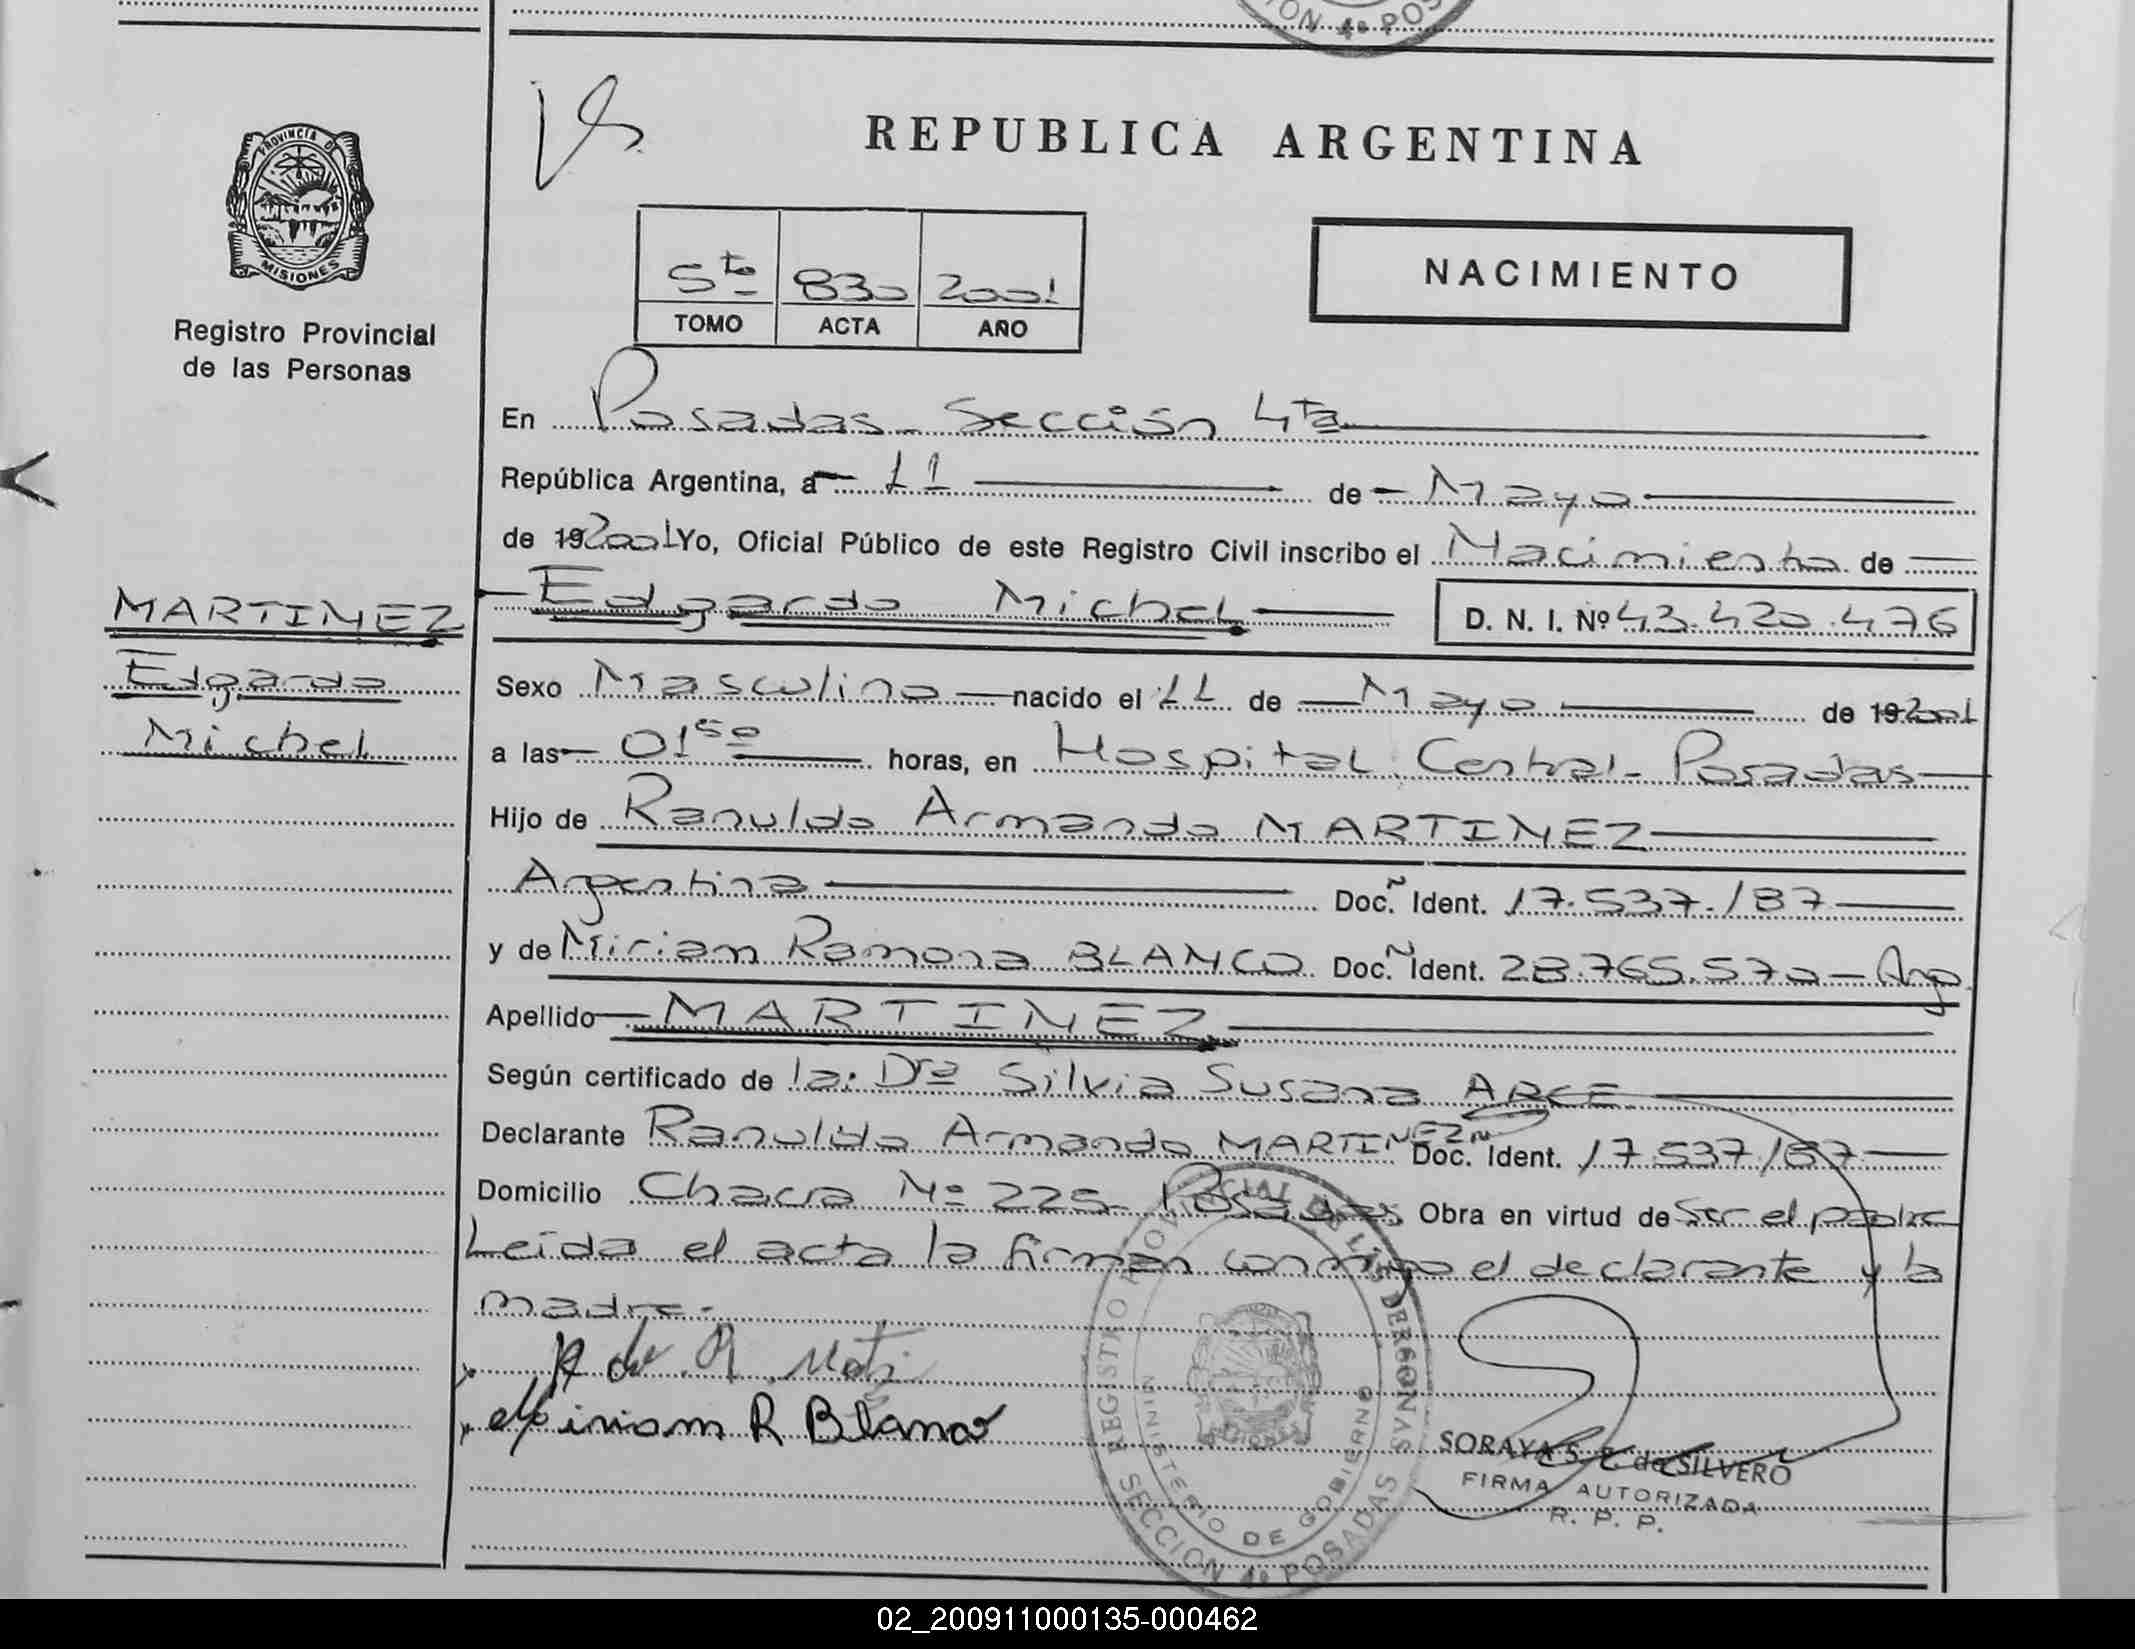 CION 4º POS
REPUBLICA ARGENTINA
PROVINCIA DE
MISIONES
Registro Provincial
de las Personas
5to 830 2001
TOMO ACTA AÑO
NACIMIENTO
En Posadas - Sección 4ta
República Argentina, a 11 de Mayo
de 19 2001 Yo, Oficial Público de este Registro Civil inscribo el Nacimiento de
MARTINEZ
Edgardo
Michel
Edgardo Michel D. N. I. Nº 43.420.476
Sexo Masculino nacido el 11 de Mayo de 19 2001
a las 01⁵⁰ horas, en Hospital Central - Posadas
Hijo de Ranuldo Armando MARTINEZ
Argentina Doc. Ident. 17.537.187
y de Miriam Ramona BLANCO Doc. Ident. 28.765.570 - Arg
Apellido MARTINEZ
Según certificado de la: Dra Silvia Susana ARCE
Declarante Ranuldo Armando MARTINEZ Doc. Ident. 17.537.187
Domicilio Chacra Nº 225 - Posadas Obra en virtud de ser el padre
Leida el acta la firman conmigo el declarante y la
madre.-
Miriam R Blanco
REGISTRO PROVINCIAL DE LAS PERSONAS
MINISTERIO DE GOBIERNO
SECCION 4º POSADAS
SORAYA S. de SILVERO
FIRMA AUTORIZADA
R. P. P.
02_200911000135-000462